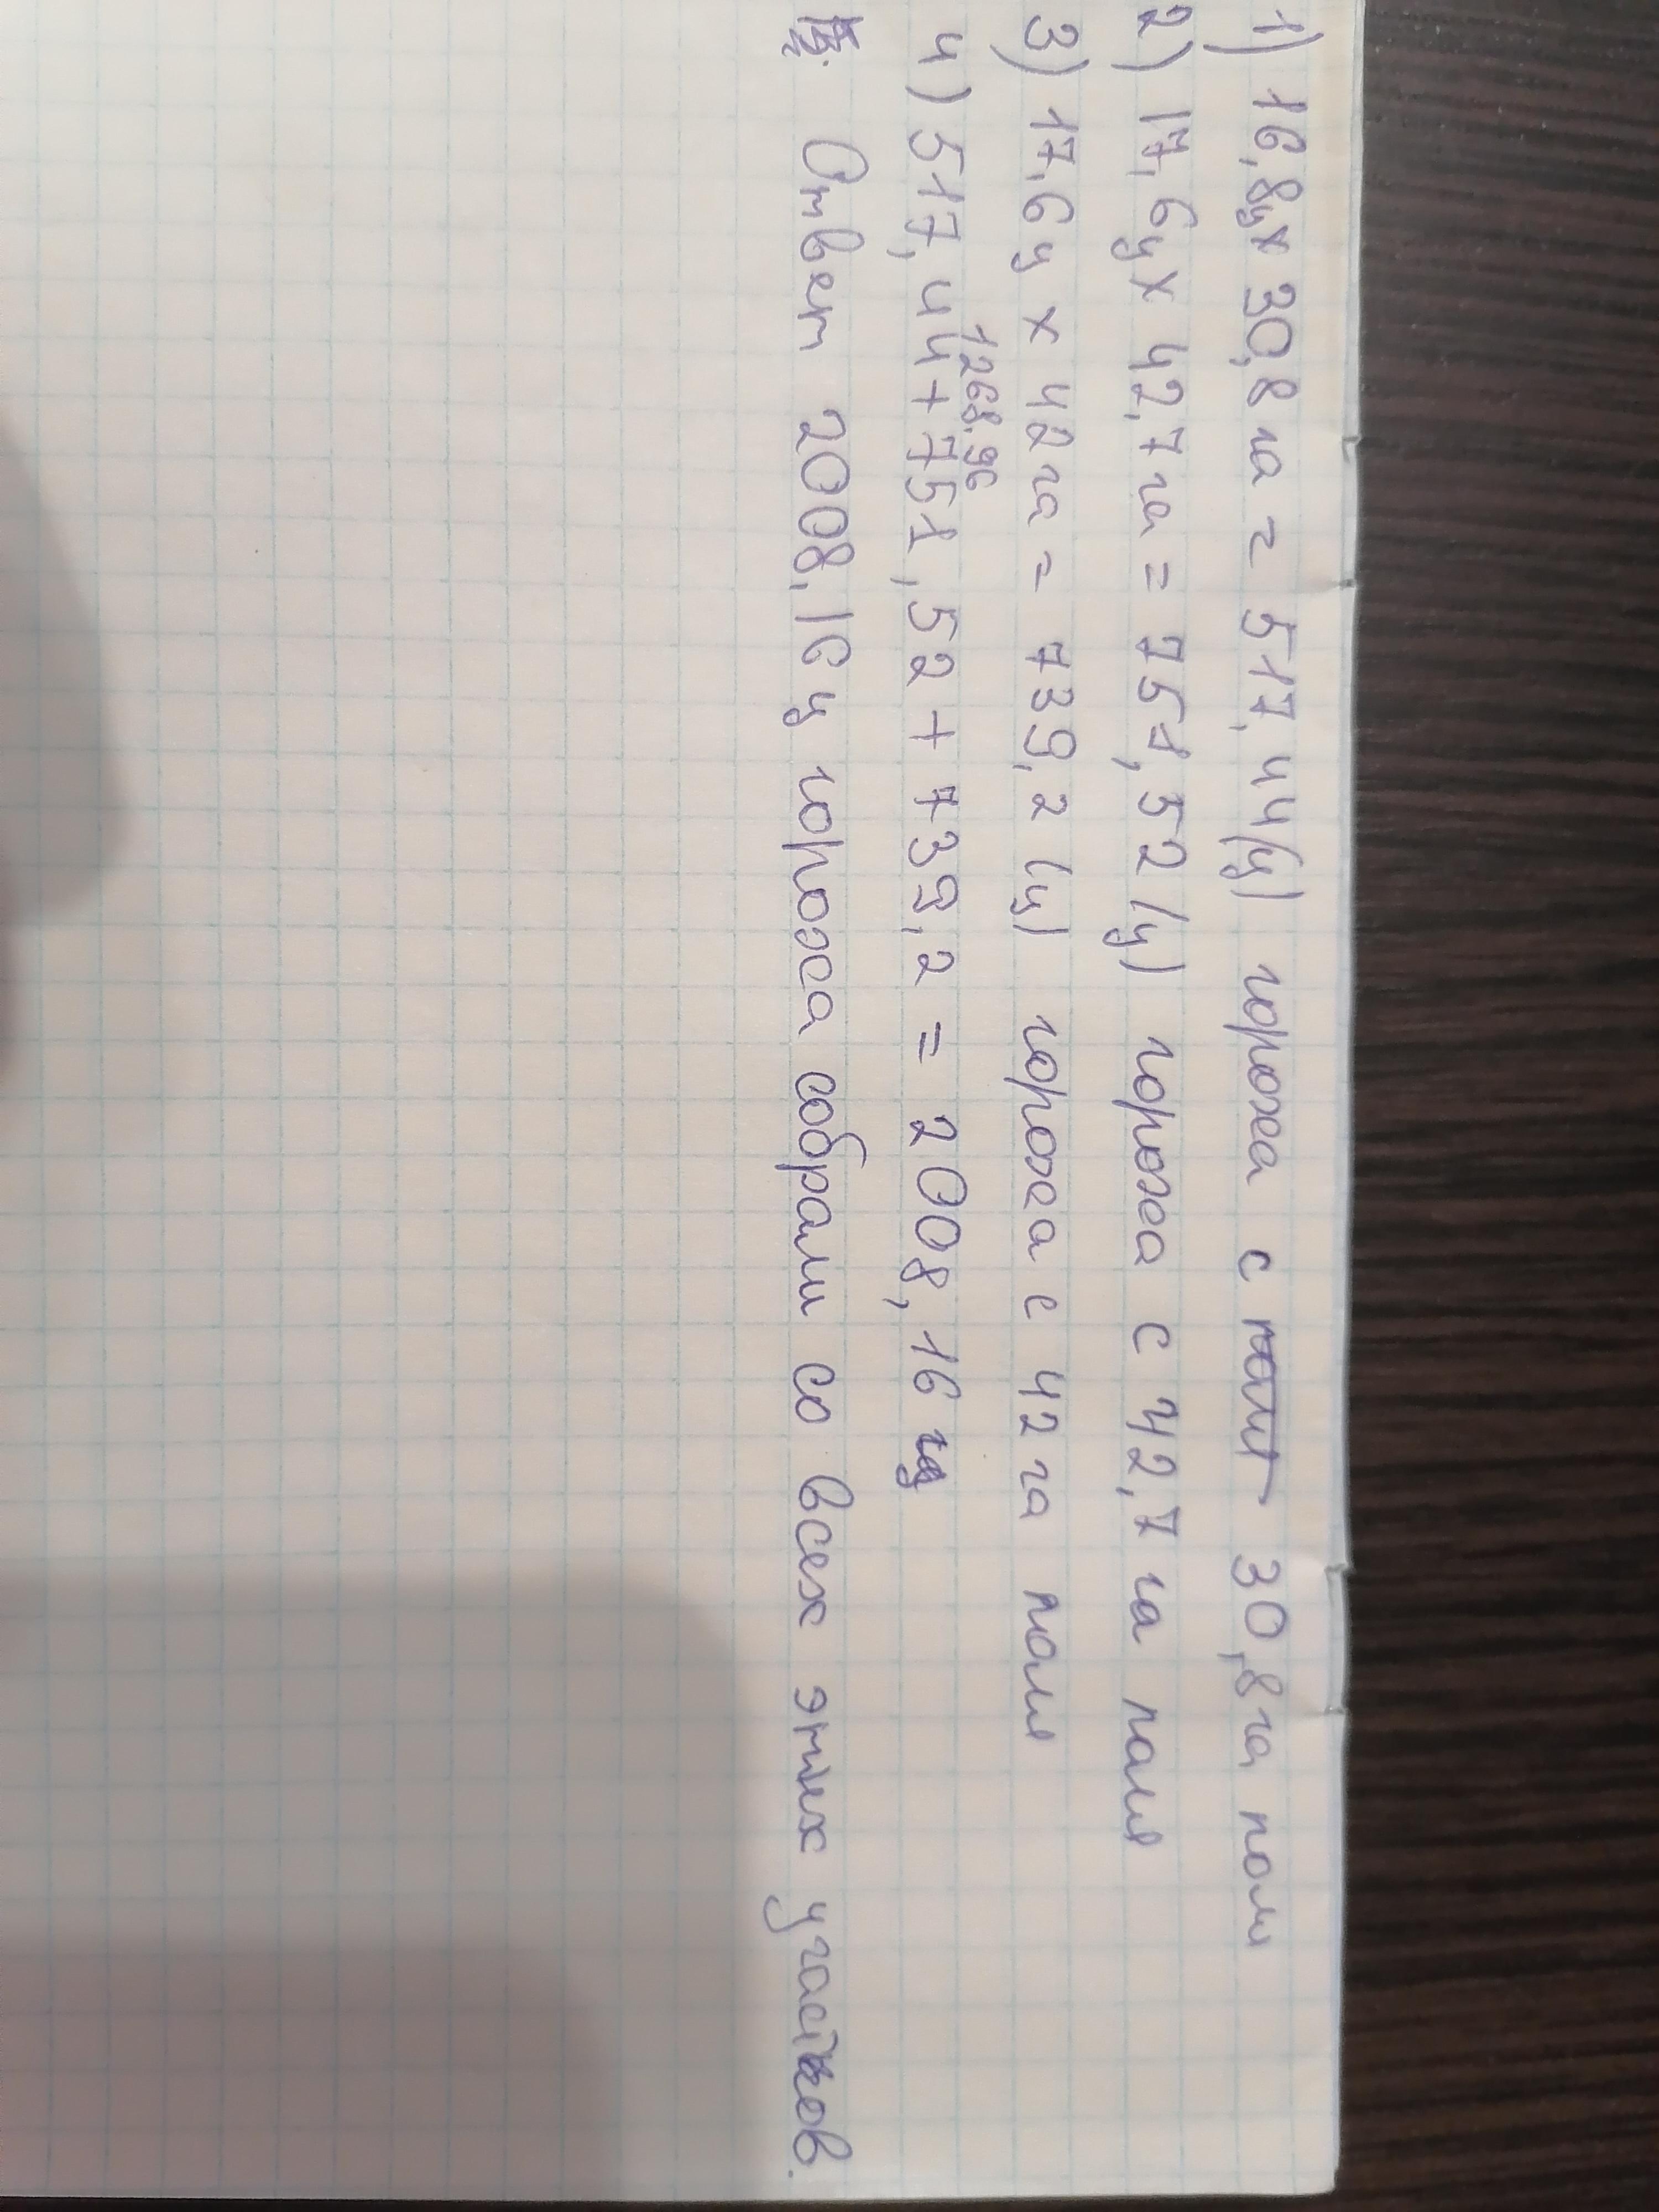 1) 16,8ц х 30,8 га = 517,44 (ц) гороха с 30,8 га поли
2) 17,6ц х 42,7 га = 751,52 (ц) гороха с 42,7 га поля
3) 17,6 ц х 42 га = 739,2 (ц) гороха с 42 га поля
1268,96
4) 517,44 + 751,52 + 739,2 = 2008,16 ц
Ответ 2008,16 ц гороха собрали со всех этих участков.